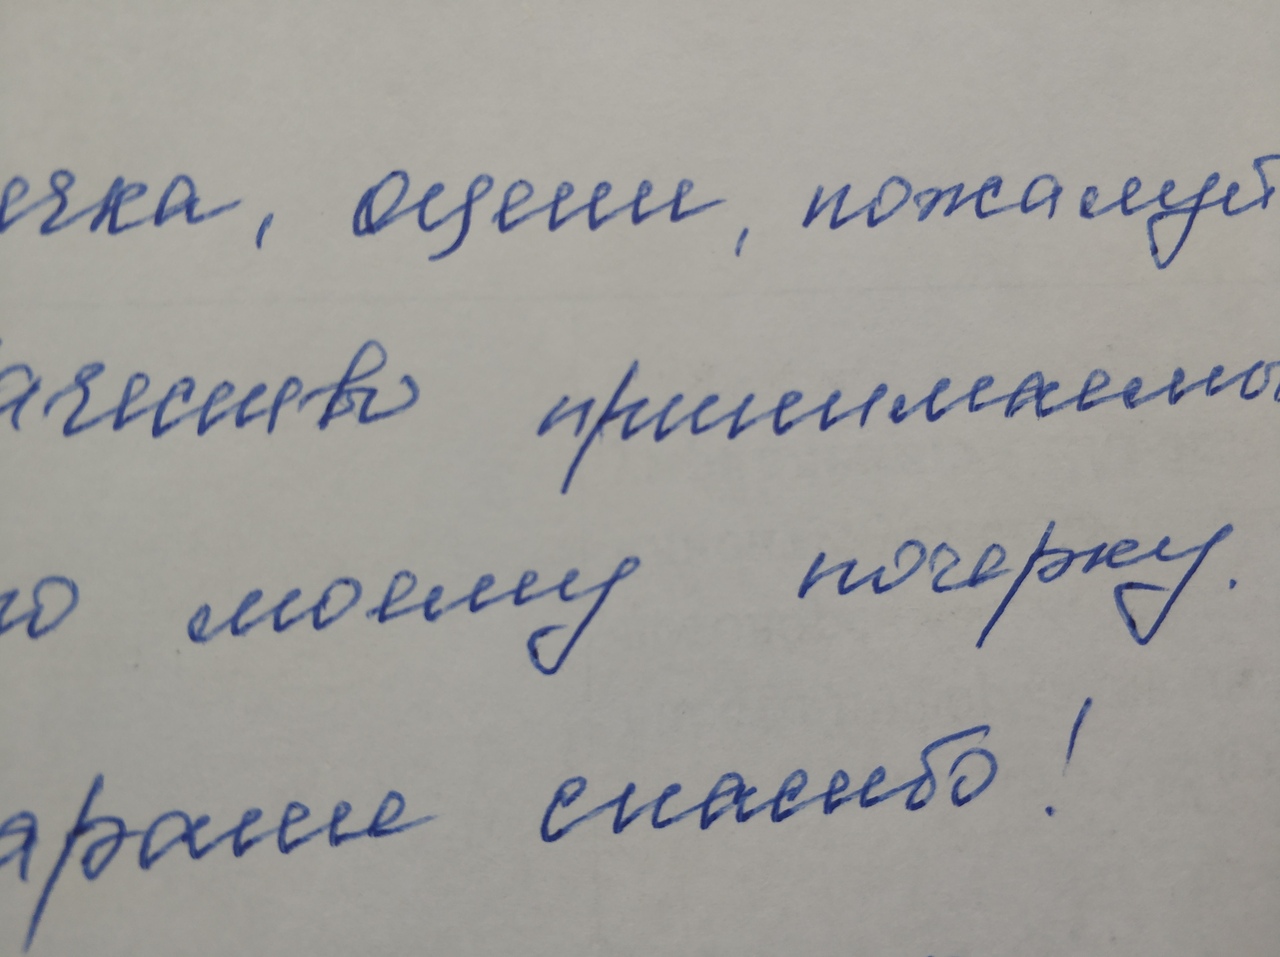 ечка, оцени, пожалуй
качество принимаемо
по моему почерку.
аранее спасибо!